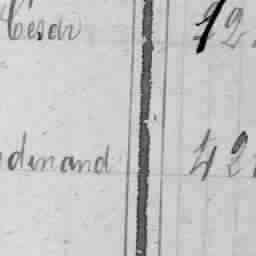 César 12
dinand 42